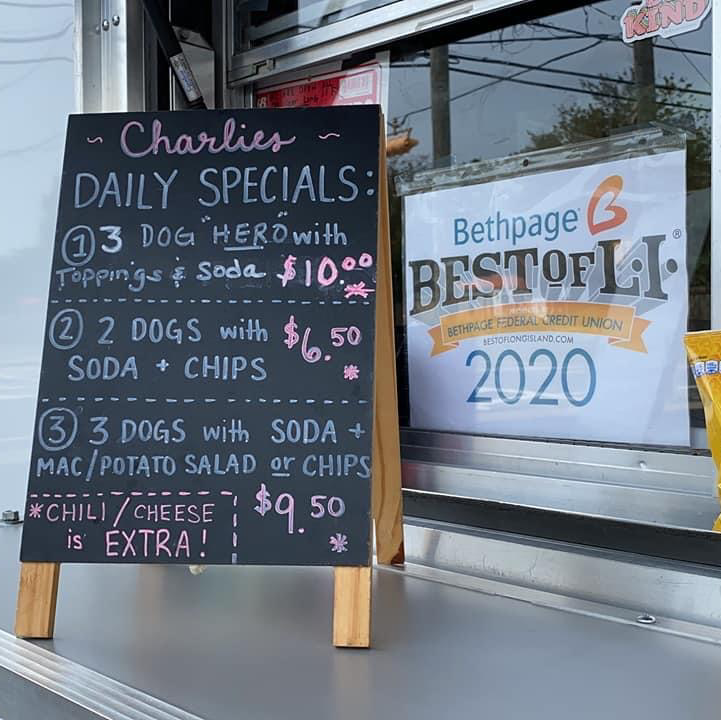 ~ Charlies ~
DAILY SPECIALS:
① 3 DOG "HERO" with
Toppings & Soda $10.00 *
② 2 DOGS with $6.50
SODA + CHIPS *
③ 3 DOGS with SODA +
MAC/POTATO SALAD or CHIPS
$9.50 *
*CHILI/CHEESE
is EXTRA!
Bethpage
BEST OF L.I.®
BETHPAGE FEDERAL CREDIT UNION
BESTOFLONGISLAND.COM
2020
KIND